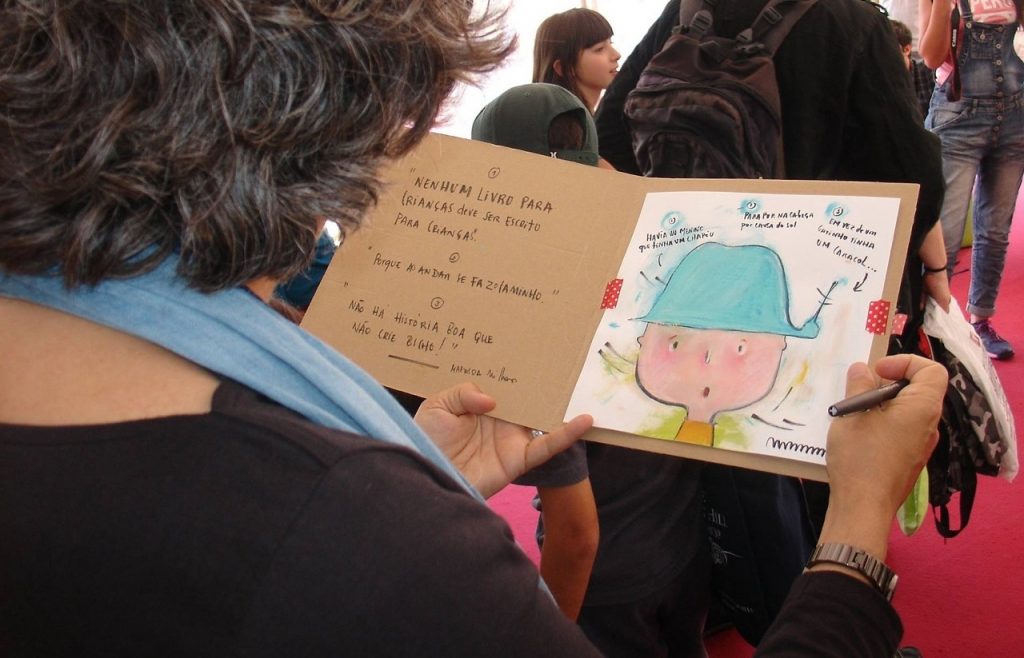 ①
"NENHUM LIVRO PARA
CRIANÇAS DEVE SER ESCRITO
PARA CRIANÇAS".
②
"PORQUE AO ANDAR SE FAZ O CAMINHO."
③
"NÃO HÁ HISTÓRIA BOA QUE
NÃO CRIE BICHO!"
①
HAVIA UM MENINO
QUE TINHA UM CHAPÉU
②
PARA POR NA CABEÇA
por causa do sol
③
EM VEZ DE UM
GATINHO TINHA
UM CARACOL...